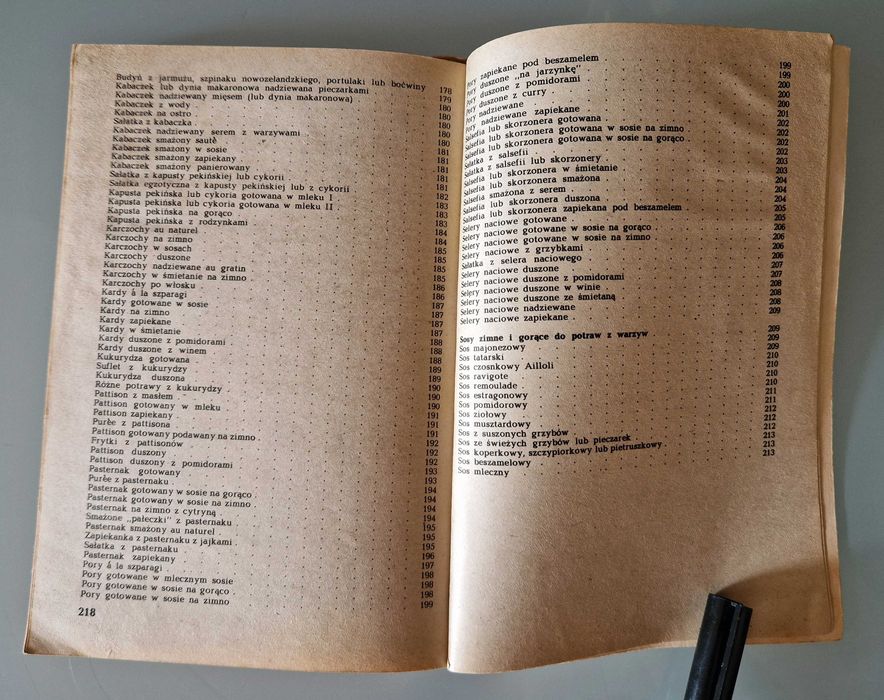 Budyń z jarmużu, szpinaku nowozelandzkiego, portulaki lub boćwiny 178
Kabaczek lub dynia makaronowa nadziewana pieczarkami 179
Kabaczek nadziewany mięsem (lub dynia makaronowa) 180
Kabaczek z wody 180
Kabaczek na ostro 180
Sałatka z kabaczka 180
Kabaczek nadziewany serem z warzywami 180
Kabaczek smażony sautê 181
Kabaczek smażony w sosie 181
Kabaczek smażony zapiekany 181
Kabaczek smażony panierowany 181
Sałatka z kapusty pekińskiej lub cykorii 181
Sałatka egzotyczna z kapusty pekińskiej lub z cykorii 182
Kapusta pekińska lub cykoria gotowana w mleku I 183
Kapusta pekińska lub cykoria gotowana w mleku II 183
Kapusta pekińska na gorąco 183
Kapusta pekińska z rodzynkami 184
Karczochy au naturel 184
Karczochy na zimno 185
Karczochy w sosach 185
Karczochy duszone 185
Karczochy nadziewane au gratin 185
Karczochy w śmietanie na zimno 186
Karczochy po włosku 186
Kardy á la szparagi 187
Kardy gotowane w sosie 187
Kardy na zimno 187
Kardy zapiekane 187
Kardy w śmietanie 188
Kardy duszone z pomidorami 188
Kardy duszone z winem 188
Kukurydza gotowana 189
Suflet z kukurydzy 189
Kukurydza duszona 190
Różne potrawy z kukurydzy 190
Pattison z masłem 190
Pattison gotowany w mleku 191
Pattison zapiekany 191
Purêe z pattisona 191
Pattison gotowany podawany na zimno 192
Frytki z pattisonów 192
Pattison duszony 192
Pattison duszony z pomidorami 193
Pasternak gotowany 194
Purêe z pasternaku 194
Pasternak gotowany w sosie na gorąco 194
Pasternak gotowany w sosie na zimno 194
Pasternak na zimno z cytryną 194
Smażone „pałeczki" z pasternaku 195
Pasternak smażony au naturel 195
Zapiekanka z pasternaku z jajkami 195
Sałatka z pasternaku 196
Pasternak zapiekany 197
Pory á la szparagi 198
Pory gotowane w mlecznym sosie 198
Pory gotowane w sosie na gorąco 198
Pory gotowane w sosie na zimno 199
218
Pory zapiekane pod beszamelem 199
Pory duszone „na jarzynkę" 199
Pory duszone z pomidorami 200
Pory duszone z curry 200
Pory nadziewane 200
Pory nadziewane zapiekane 201
Salsefia lub skorzonera gotowana 202
Salsefia lub skorzonera gotowana w sosie na zimno 202
Salsefia lub skorzonera gotowana w sosie na gorąco 202
Sałatka z salsefii 202
Sałatka z salsefii lub skorzonery 203
Salsefia lub skorzonera w śmietanie 203
Salsefia lub skorzonera smażona 204
Salsefia smażona z serem 204
Salsefia lub skorzonera duszona 204
Salsefia lub skorzonera zapiekana pod beszamelem 205
Selery naciowe gotowane 205
Selery naciowe gotowane w sosie na gorąco 206
Selery naciowe gotowane w sosie na zimno 206
Selery naciowe z grzybkami 206
Sałatka z selera naciowego 206
Selery naciowe duszone 207
Selery naciowe duszone z pomidorami 207
Selery naciowe duszone w winie 208
Selery naciowe duszone ze śmietaną 208
Selery naciowe nadziewane 208
Selery naciowe zapiekane 209
Sosy zimne i gorące do potraw z warzyw 209
Sos majonezowy 209
Sos tatarski 209
Sos czosnkowy Ailloli 210
Sos ravigote 210
Sos remoulade 210
Sos estragonowy 210
Sos pomidorowy 211
Sos ziołowy 211
Sos musztardowy 212
Sos z suszonych grzybów 212
Sos ze świeżych grzybów lub pieczarek 212
Sos koperkowy, szczypiorkowy lub pietruszkowy 213
Sos beszamelowy 213
Sos mleczny 213